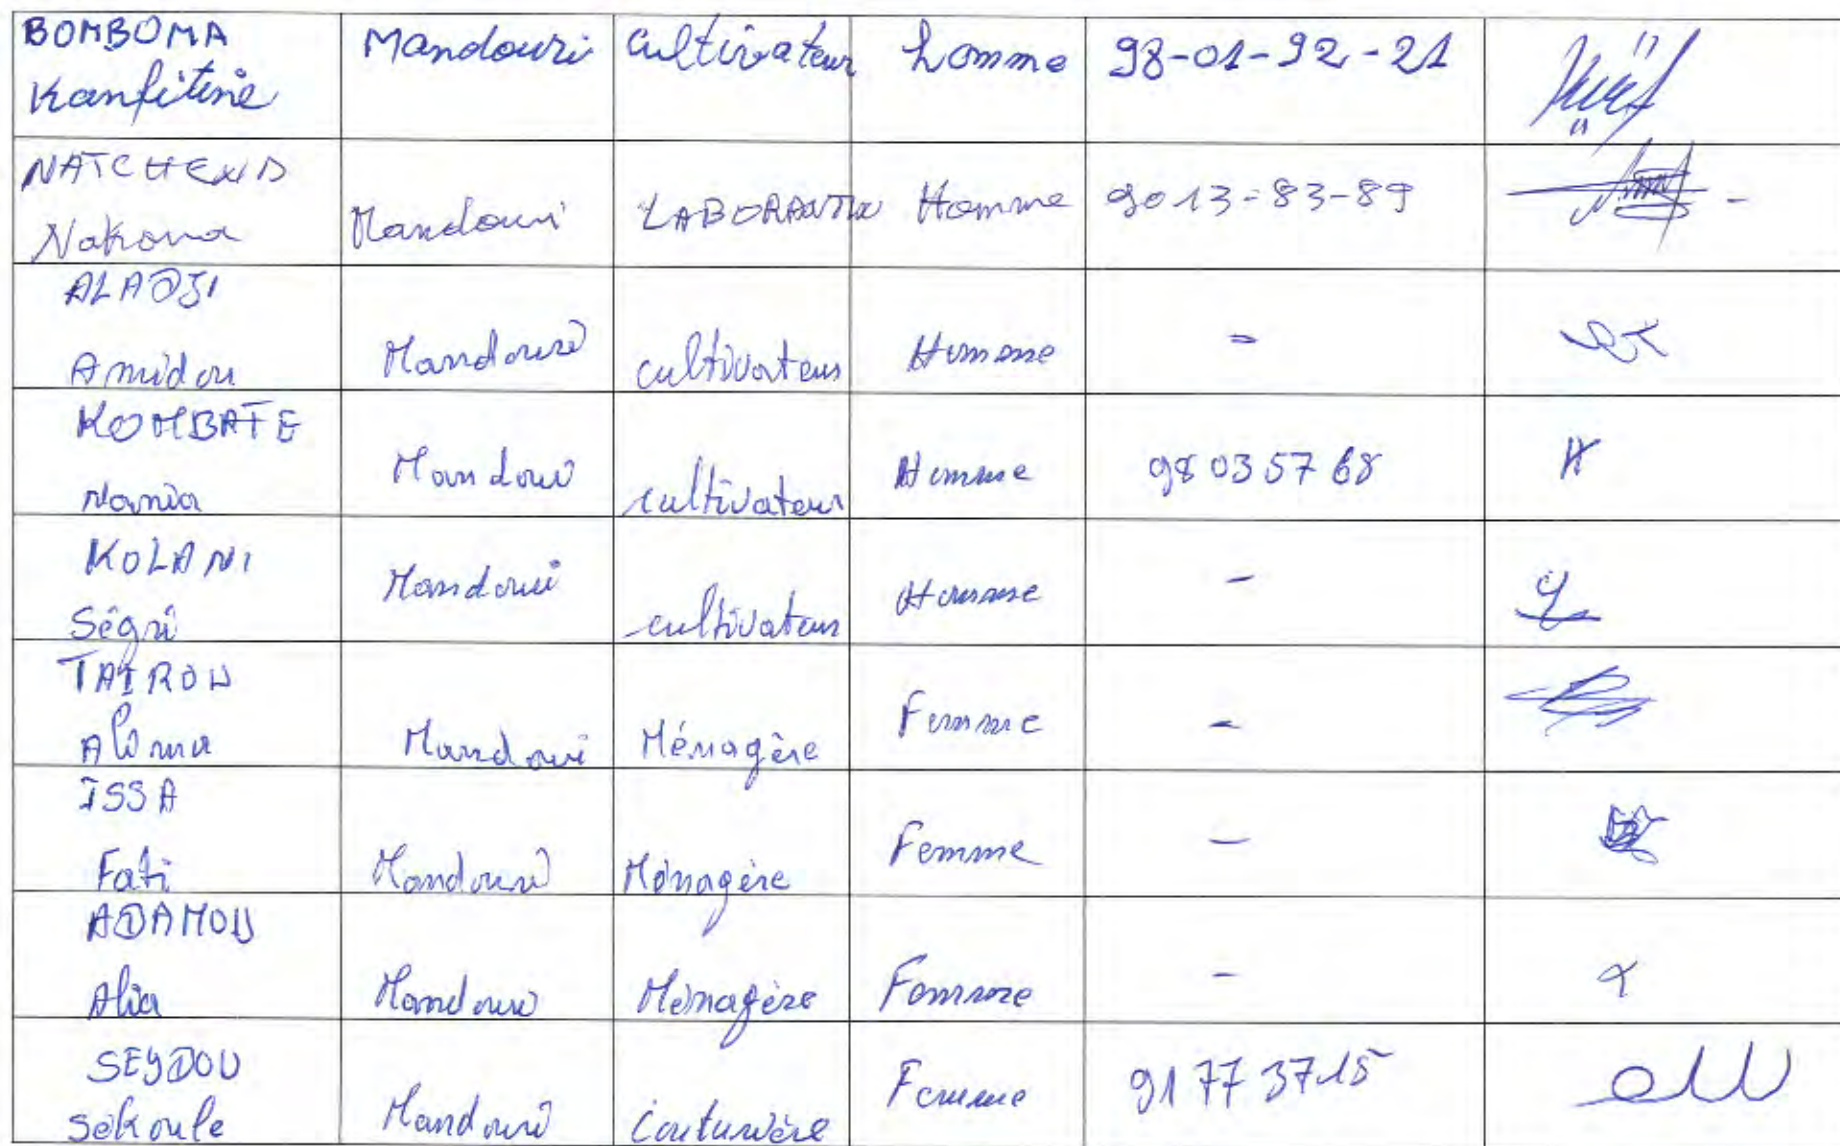 BOMBOMA Kanfitine Mandouri Cultivateur homme 98-01-92-21
NATCHEND Nakona Mandouri LABORANTIN Homme 9013-83-89
ALADJI Amidou Mandouri cultivateur Homme -
KOMBATE Nania Mandouri cultivateur Homme 98035768
KOLANI Ségri Mandouri cultivateur Homme -
TAIROU Mandouri Ménagère Femme -
ISSA Fati Mandouri Ménagère Femme -
ADAMOU Alia Mandouri Ménagère Femme -
SEYDOU Sékoule Mandouri Couturière Femme 91773715